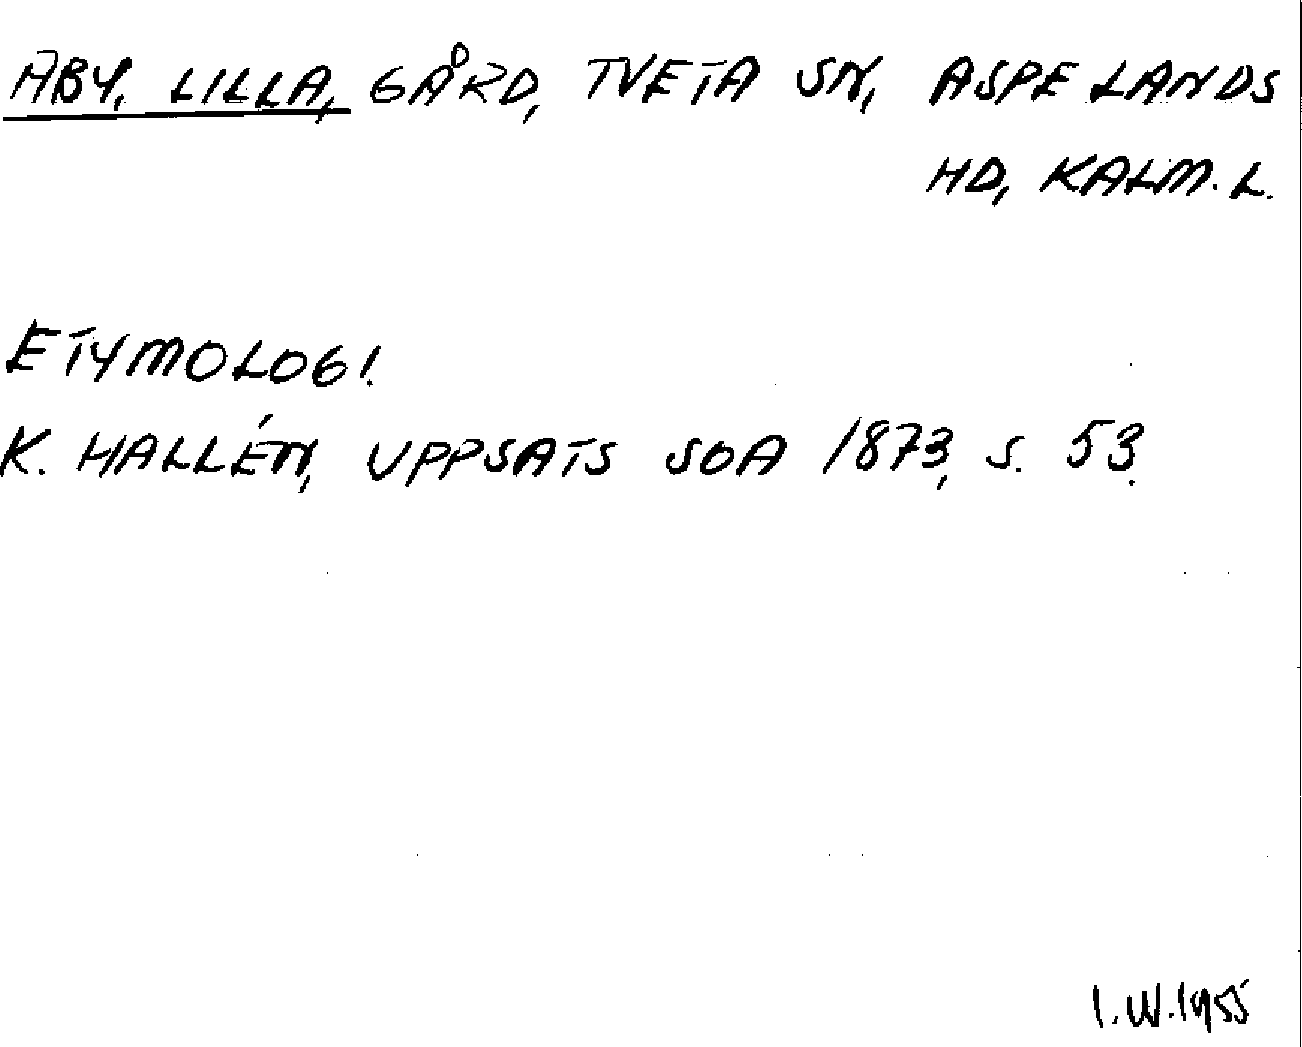 ÅBY, LILLA, GÅRD, TVETA SN, ASPELANDS
HD, KALM. L.
ETYMOLOGI.
K. HALLÉN, UPPSATS SOA 1873, S. 53.
I.W.1955